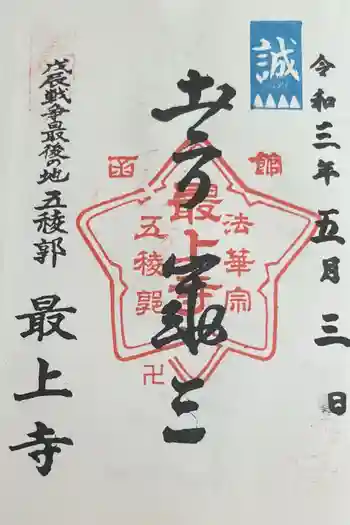 誠
令和三年五月三日
土方歳三
函館
法華宗
最上寺
五稜郭
卍
戊辰戦争最後の地 五稜郭
最上寺